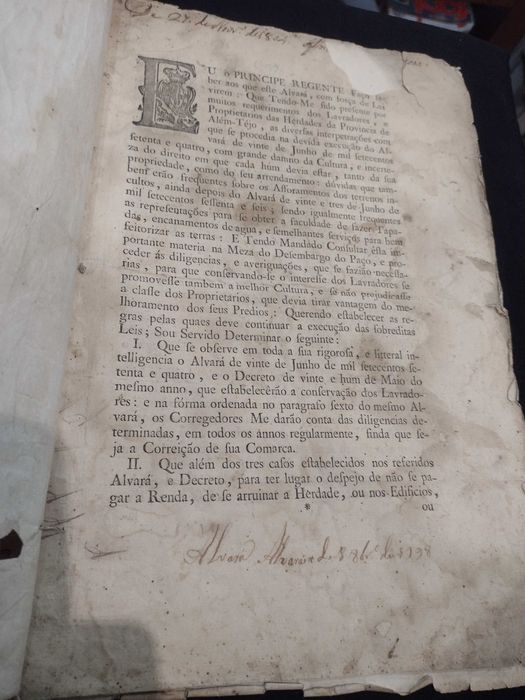 De 27. de Nov. de 1804
EU O PRINCIPE REGENTE Faço sa-
ber aos que este Alvará, com força de Lei
virem: Que Tendo-Me sido presente por
muitos requerimentos dos Lavradores, e
Proprietarios das Herdades da Provincia de
Além-Téjo, as diversas interpretações com
que se procedia na devida execução do Al-
vará de vinte de Junho de mil setecentos
setenta e quatro, com grande damno da Cultura, e incerte-
za do direito em que cada hum devia estar, tanto da sua
propriedade, como do seu arrendamento: dúvidas que tam-
bem erão frequentes sobre os Afforamentos dos terrenos in-
cultos, ainda depois do Alvará de vinte e tres de Junho de
mil setecentos sessenta e seis; sendo igualmente frequentes
as representações para se obter a faculdade de fazer Tapa-
das, encanamentos de agua, e semelhantes serviços para bem
feitorizar as terras: E Tendo Mandado Consultar esta im-
portante materia na Meza do Desembargo do Paço, e pro-
ceder ás diligencias, e averiguações, que se fazião necessa-
rias, para que conservando-se o interesse dos Lavradores se
promovesse tambem a melhor Cultura, e se não prejudicasse
a classe dos Proprietarios, que devia tirar vantagem do me-
lhoramento dos seus Predios: Querendo estabelecer as re-
gras pelas quaes deve continuar a execução das sobreditas
Leis; Sou Servido Determinar o seguinte:
I. Que se observe em toda a sua rigorosa, e litteral in-
telligencia o Alvará de vinte de Junho de mil setecentos se-
tenta e quatro, e o Decreto de vinte e hum de Maio do
mesmo anno, que estabelecêrão a conservação dos Lavrado-
res: e na fórma ordenada no paragrafo sexto do mesmo Al-
vará, os Corregedores Me darão conta das diligencias de-
terminadas, em todos os annos regularmente, finda que se-
ja a Correição de sua Comarca.
II. Que além dos tres casos estabelecidos nos referidos
Alvará, e Decreto, para ter lugar o despejo de não se pa-
gar a Renda, de se arruinar a Herdade, ou nos Edificios,
* ou
Alvará